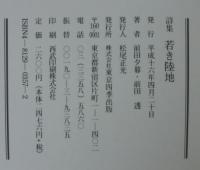 詩集 若き陸地
発行 平成十六年四月二十日
著者 前田夕暮・前田透
発行人 松尾正光
発行所 株式会社東京四季出版
〒160-0001 東京都新宿区片町一-一-四〇二
電話 〇三(三三五八)五八六〇
振替 〇〇一九〇-三-九三八三五
印刷 西武印刷株式会社
定価 二六〇〇円(本体二四七六円+税)
ISBN4-8129-0357-2